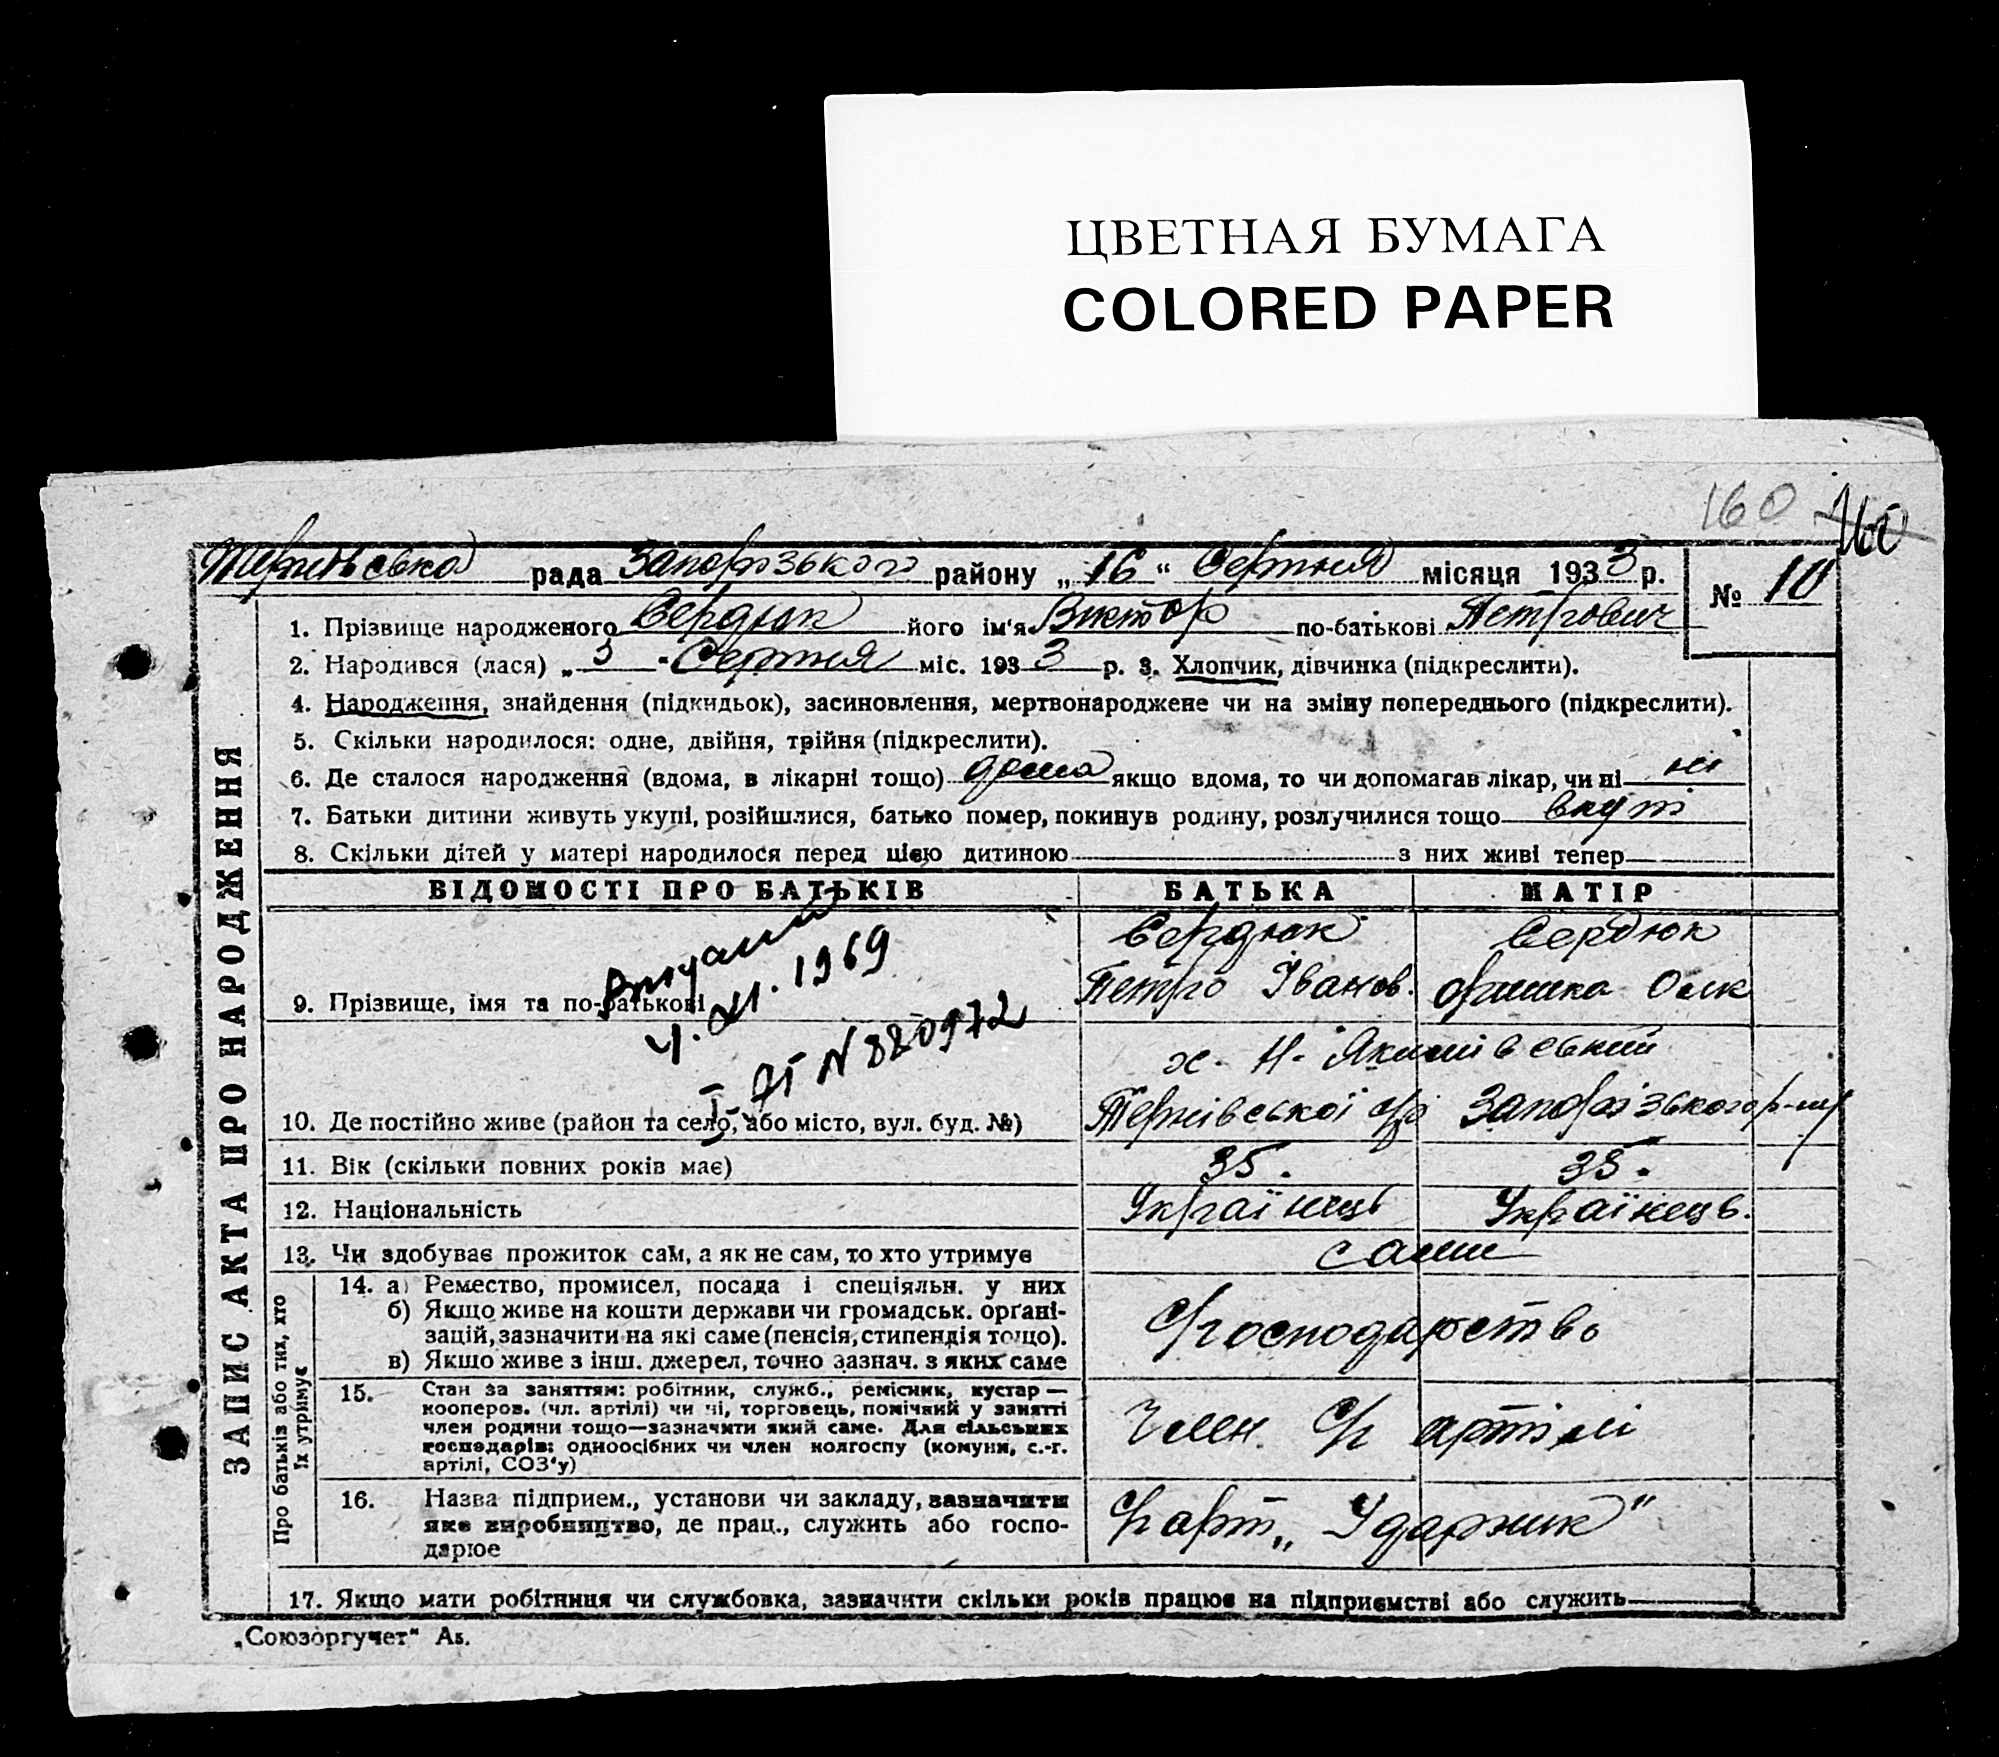 ЦВЕТНАЯ БУМАГА
COLORED PAPER
160 160
Тернівська рада Запорізького району „16“ Серпня місяця 1933 р. № 10
ЗАПИС АКТА ПРО НАРОДЖЕННЯ
1. Прізвище народженого Сердюк його ім'я Виктор по-батькові Петрович
2. Народився (лася) „5“ Серпня міс. 1933 р. 3. Хлопчик, дівчинка (підкреслити).
4. Народження, знайдення (підкидьок), засиновлення, мертвонароджене чи на зміну попереднього (підкреслити).
5. Скільки народилося: одне, двійня, трійня (підкреслити).
6. Де сталося народження (вдома, в лікарні тощо) дома якщо вдома, то чи допомагав лікар, чи ні ні
7. Батьки дитини живуть укупі, розійшлися, батько помер, покинув родину, розлучилися тощо вкупі
8. Скільки дітей у матері народилося перед цією дитиною з них живі тепер
ВІДОМОСТІ ПРО БАТЬКІВ БАТЬКА МАТІР
Сердюк Сердюк
9. Прізвище, імя та по-батькові Петро Іванов. Оришка
XI. 1969
N 880972
х. Н. Якимівський
10. Де постійно живе (район та село, або місто, вул. буд. №) Тернівської с/р Запорізького р-ну
11. Вік (скільки повних років має) 35. 35.
12. Національність Українець Українець.
13. Чи здобуває прожиток сам, а як не сам, то хто утримує сами
Про батьків або тих, хто їх утримує
14. а) Ремество, промисел, посада і спеціяльн. у них
б) Якщо живе на кошти держави чи громадськ. орґані-
зацій, зазначити на які саме (пенсія, стипендія тощо).
в) Якщо живе з інш. джерел, точно зазнач. з яких саме
С/господарство
15. Стан за заняттям: робітник, служб., ремісник, кустар —
кооперов. (чл. артілі) чи ні, торговець, помічний у занятті
член родини тощо—зазначити який саме. Для сільських
господарів: одноосібних чи член колгоспу (комуни, с.-г.
артілі, СОЗ'у)
Член с/г артілі
16. Назва підприєм., установи чи закладу, зазначити
яке виробництво, де прац., служить або госпо-
дарює
С/г арт „Ударник“
17. Якщо мати робітниця чи службовка, зазначити скільки років працює на підприємстві або служить
„Союзоргучет“ А5.